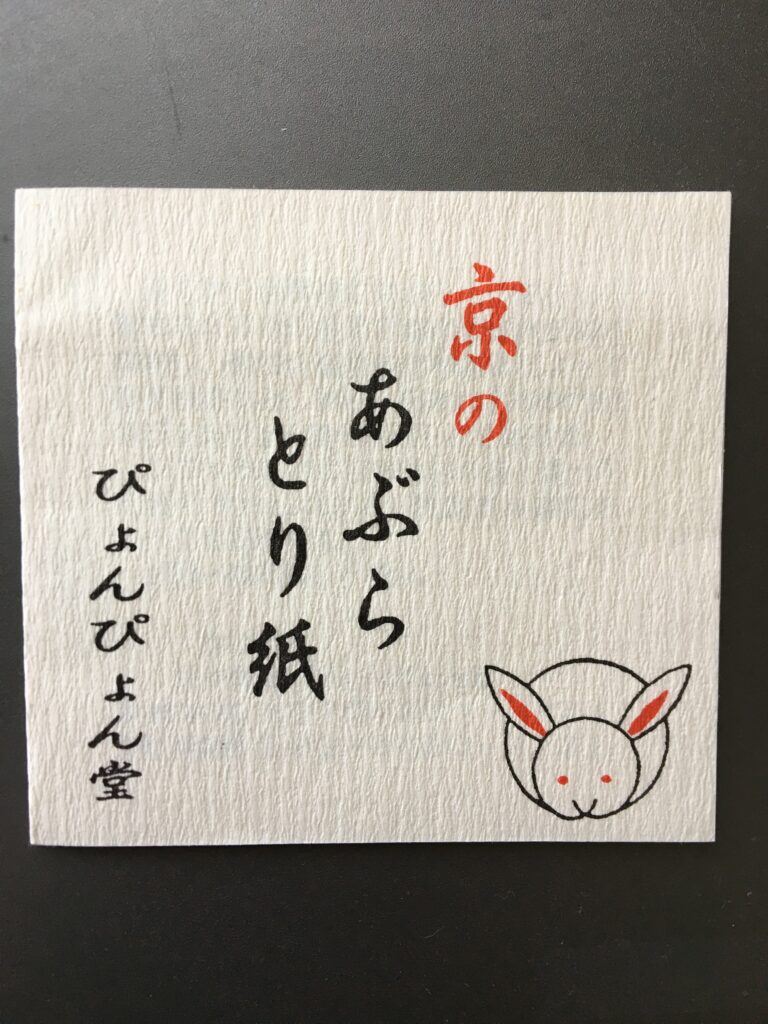 京の
あぶら
とり紙
ぴょんぴょん堂